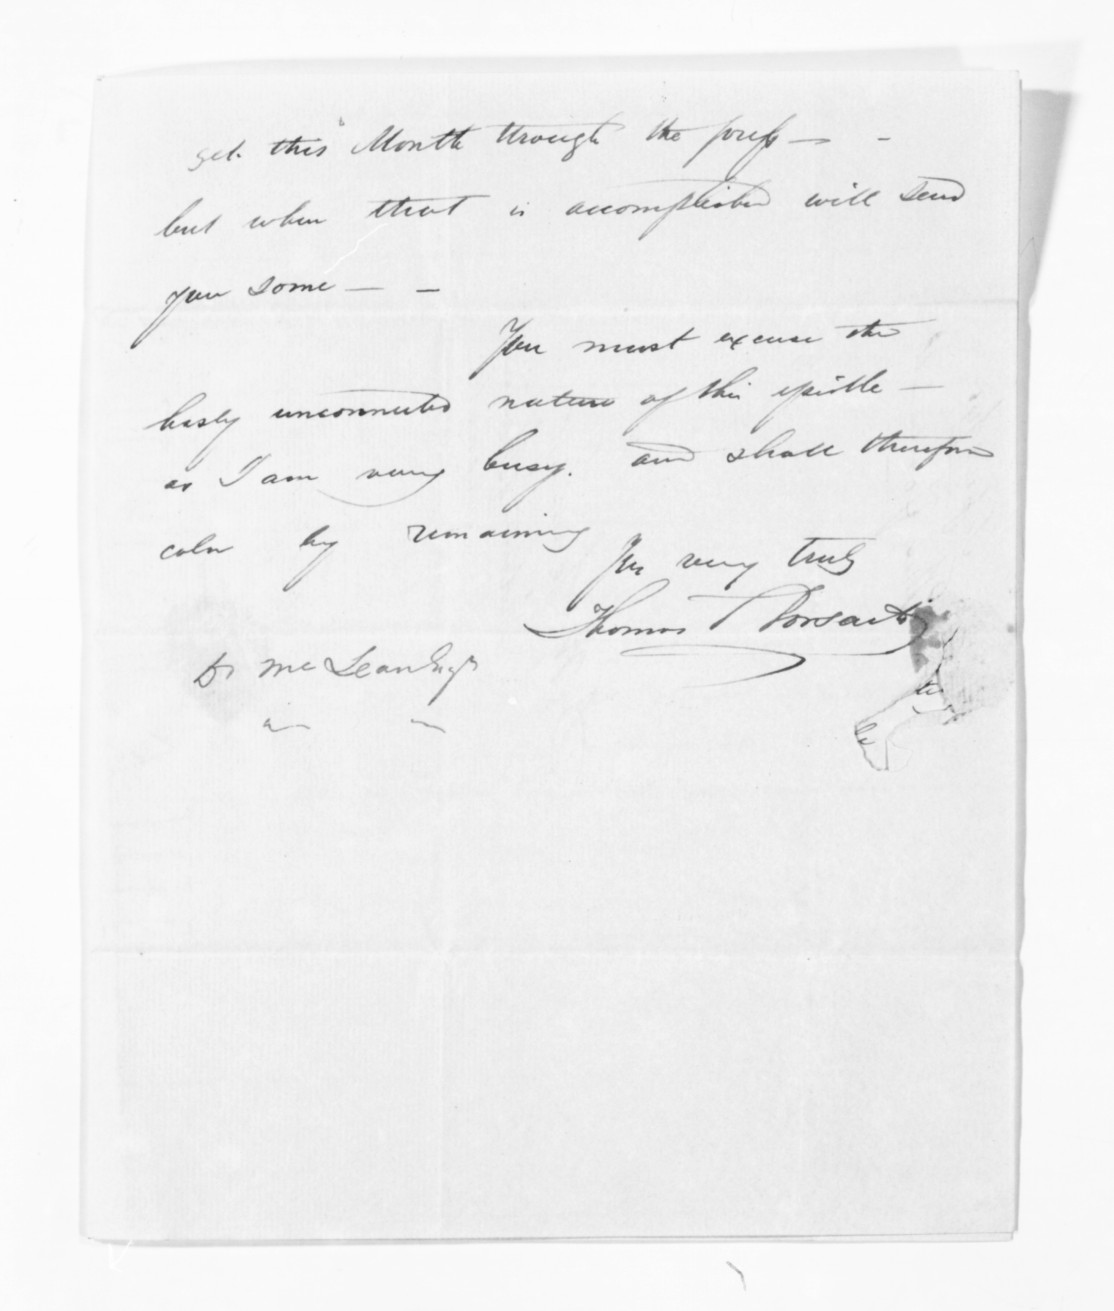 get this Month through the press — -
but when that is accomplished will send
you some — -
You must excuse the
hasty unconnected nature of this epistle —
as I am very busy. and shall therefore
by remaining
Yrs very truly
Thomas T
Dr McLean